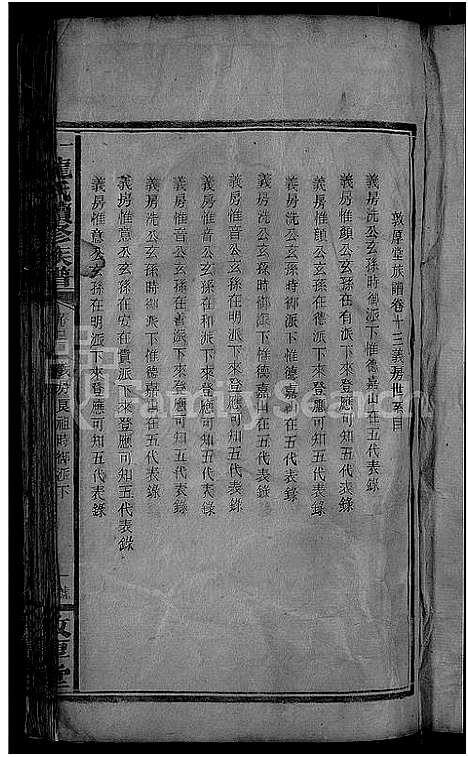 敦厚堂族譜卷十三義房世系目
義房洗公玄孫時御派下惟德嘉山在五代表錄
義房惟顏公玄孫在有派下來登應可知五代表錄
義房惟顏公玄孫在同派下來登應可知五代表錄
義房洗公玄孫時御派下惟德嘉山在五代表錄
義房洗公玄孫時御派下惟德嘉在五代表錄
義房惟音公玄孫在派下來登應可知五代表錄
義房惟音公玄孫在和派下來登應可知五代表錄
義房惟音公玄孫在善派下來登應可知五代表錄
義房洗公玄孫時御派下惟德嘉在五代表錄
義房惟意公玄孫在安在貴派下來登應可知五代表錄
義房惟意公玄孫在明派下來登應可知五代表錄
龍氏續修族譜
義房良祖時御派下
敦厚堂
FamilySearch